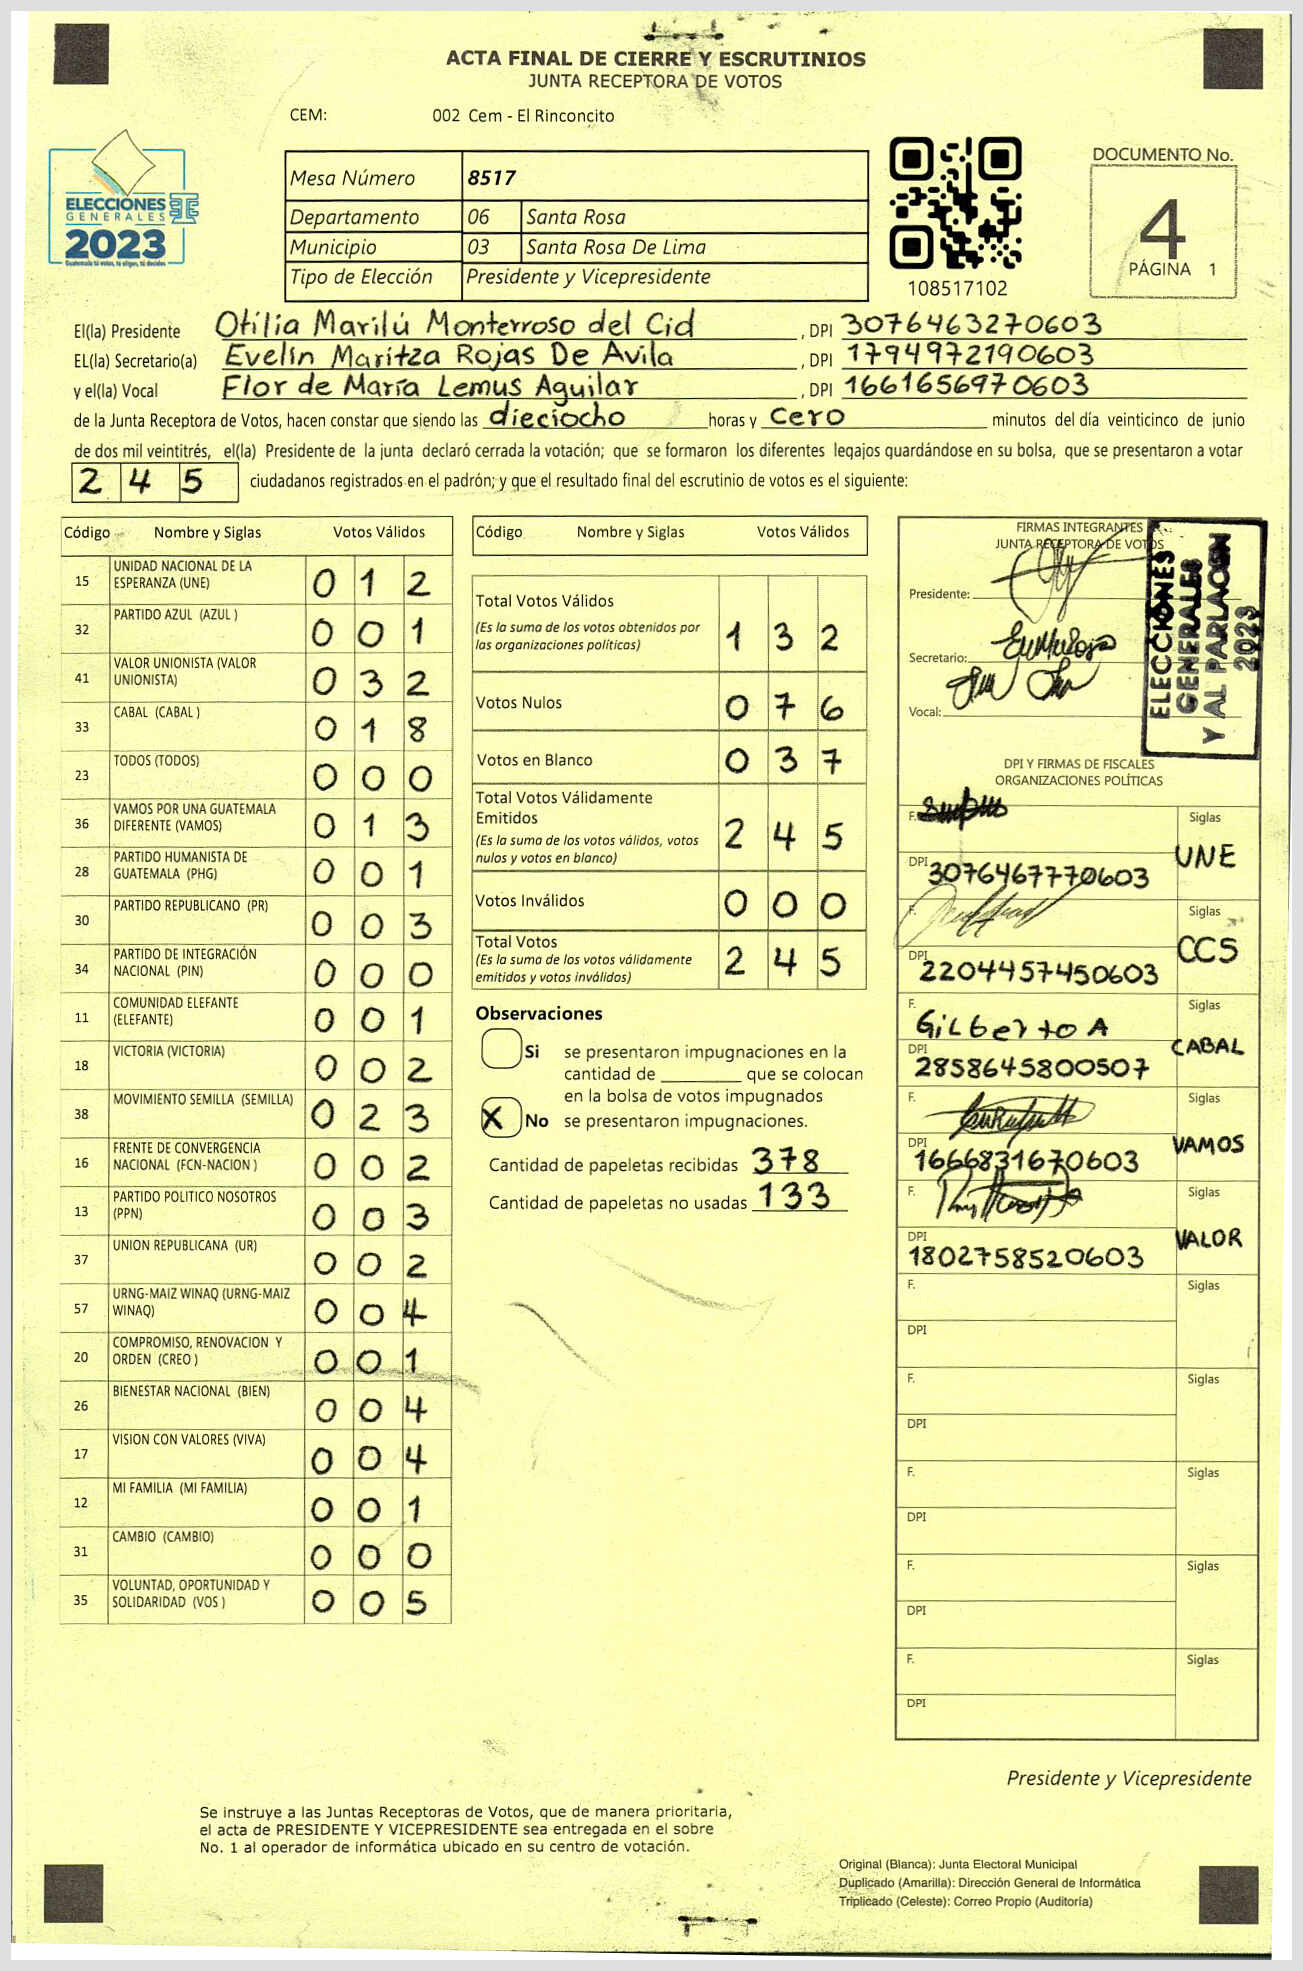 ACTA FINAL DE CIERRE Y ESCRUTINIOS
JUNTA RECEPTORA DE VOTOS
CEM: 002 Cem - El Rinconcito
ELECCIONES
GENERALES
2023
Guatemala tú votas, tú eliges, tú decides
Mesa Número 8517
Departamento 06 Santa Rosa
Municipio 03 Santa Rosa De Lima
Tipo de Elección Presidente y Vicepresidente
108517102
DOCUMENTO No.
4
PÁGINA 1
El(la) Presidente Otilia Marilú Monterroso del Cid, DPI 3076463270603
EL(la) Secretario(a) Evelin Maritza Rojas De Avila, DPI 1794972190603
y el(la) Vocal Flor de María Lemus Aguilar, DPI 1661656970603
de la Junta Receptora de Votos, hacen constar que siendo las dieciocho horas y cero minutos del día veinticinco de junio
de dos mil veintitrés, el(la) Presidente de la junta declaró cerrada la votación; que se formaron los diferentes legajos guardándose en su bolsa, que se presentaron a votar
2 4 5 ciudadanos registrados en el padrón; y que el resultado final del escrutinio de votos es el siguiente:
Código Nombre y Siglas Votos Válidos
15 UNIDAD NACIONAL DE LA
ESPERANZA (UNE) 0 1 2
32 PARTIDO AZUL (AZUL ) 0 0 1
41 VALOR UNIONISTA (VALOR
UNIONISTA) 0 3 2
33 CABAL (CABAL ) 0 1 8
23 TODOS (TODOS) 0 0 0
36 VAMOS POR UNA GUATEMALA
DIFERENTE (VAMOS) 0 1 3
28 PARTIDO HUMANISTA DE
GUATEMALA (PHG) 0 0 1
30 PARTIDO REPUBLICANO (PR) 0 0 3
34 PARTIDO DE INTEGRACIÓN
NACIONAL (PIN) 0 0 0
11 COMUNIDAD ELEFANTE
(ELEFANTE) 0 0 1
18 VICTORIA (VICTORIA) 0 0 2
38 MOVIMIENTO SEMILLA (SEMILLA) 0 2 3
16 FRENTE DE CONVERGENCIA
NACIONAL (FCN-NACION ) 0 0 2
13 PARTIDO POLITICO NOSOTROS
(PPN) 0 0 3
37 UNION REPUBLICANA (UR) 0 0 2
57 URNG-MAIZ WINAQ (URNG-MAIZ
WINAQ) 0 0 4
20 COMPROMISO, RENOVACION Y
ORDEN (CREO ) 0 0 1
26 BIENESTAR NACIONAL (BIEN) 0 0 4
17 VISION CON VALORES (VIVA) 0 0 4
12 MI FAMILIA (MI FAMILIA) 0 0 1
31 CAMBIO (CAMBIO) 0 0 0
35 VOLUNTAD, OPORTUNIDAD Y
SOLIDARIDAD (VOS ) 0 0 5
Código Nombre y Siglas Votos Válidos
Total Votos Válidos
(Es la suma de los votos obtenidos por
las organizaciones políticas) 1 3 2
Votos Nulos 0 7 6
Votos en Blanco 0 3 7
Total Votos Válidamente
Emitidos
(Es la suma de los votos válidos, votos
nulos y votos en blanco) 2 4 5
Votos Inválidos 0 0 0
Total Votos
(Es la suma de los votos válidamente
emitidos y votos inválidos) 2 4 5
Observaciones
Si se presentaron impugnaciones en la
cantidad de ________ que se colocan
en la bolsa de votos impugnados
X No se presentaron impugnaciones.
Cantidad de papeletas recibidas 378
Cantidad de papeletas no usadas 133
FIRMAS INTEGRANTES
JUNTA RECEPTORA DE VOTOS
Presidente:
Secretario:
Vocal:
ELECCIONES
GENERALES
Y AL PARLACEN
2023
DPI Y FIRMAS DE FISCALES
ORGANIZACIONES POLÍTICAS
F. Siglas
UNE
DPI 3076467770603
F. Siglas
CCS
DPI 2204457450603
F. Gilberto A Siglas
CABAL
DPI 2858645800507
F. Siglas
VAMOS
DPI 1666831670603
F. Siglas
VALOR
DPI 1802758520603
F. Siglas
DPI
F. Siglas
DPI
F. Siglas
DPI
F. Siglas
DPI
F. Siglas
DPI
Presidente y Vicepresidente
Se instruye a las Juntas Receptoras de Votos, que de manera prioritaria,
el acta de PRESIDENTE Y VICEPRESIDENTE sea entregada en el sobre
No. 1 al operador de informática ubicado en su centro de votación.
Original (Blanca): Junta Electoral Municipal
Duplicado (Amarilla): Dirección General de Informática
Triplicado (Celeste): Correo Propio (Auditoría)